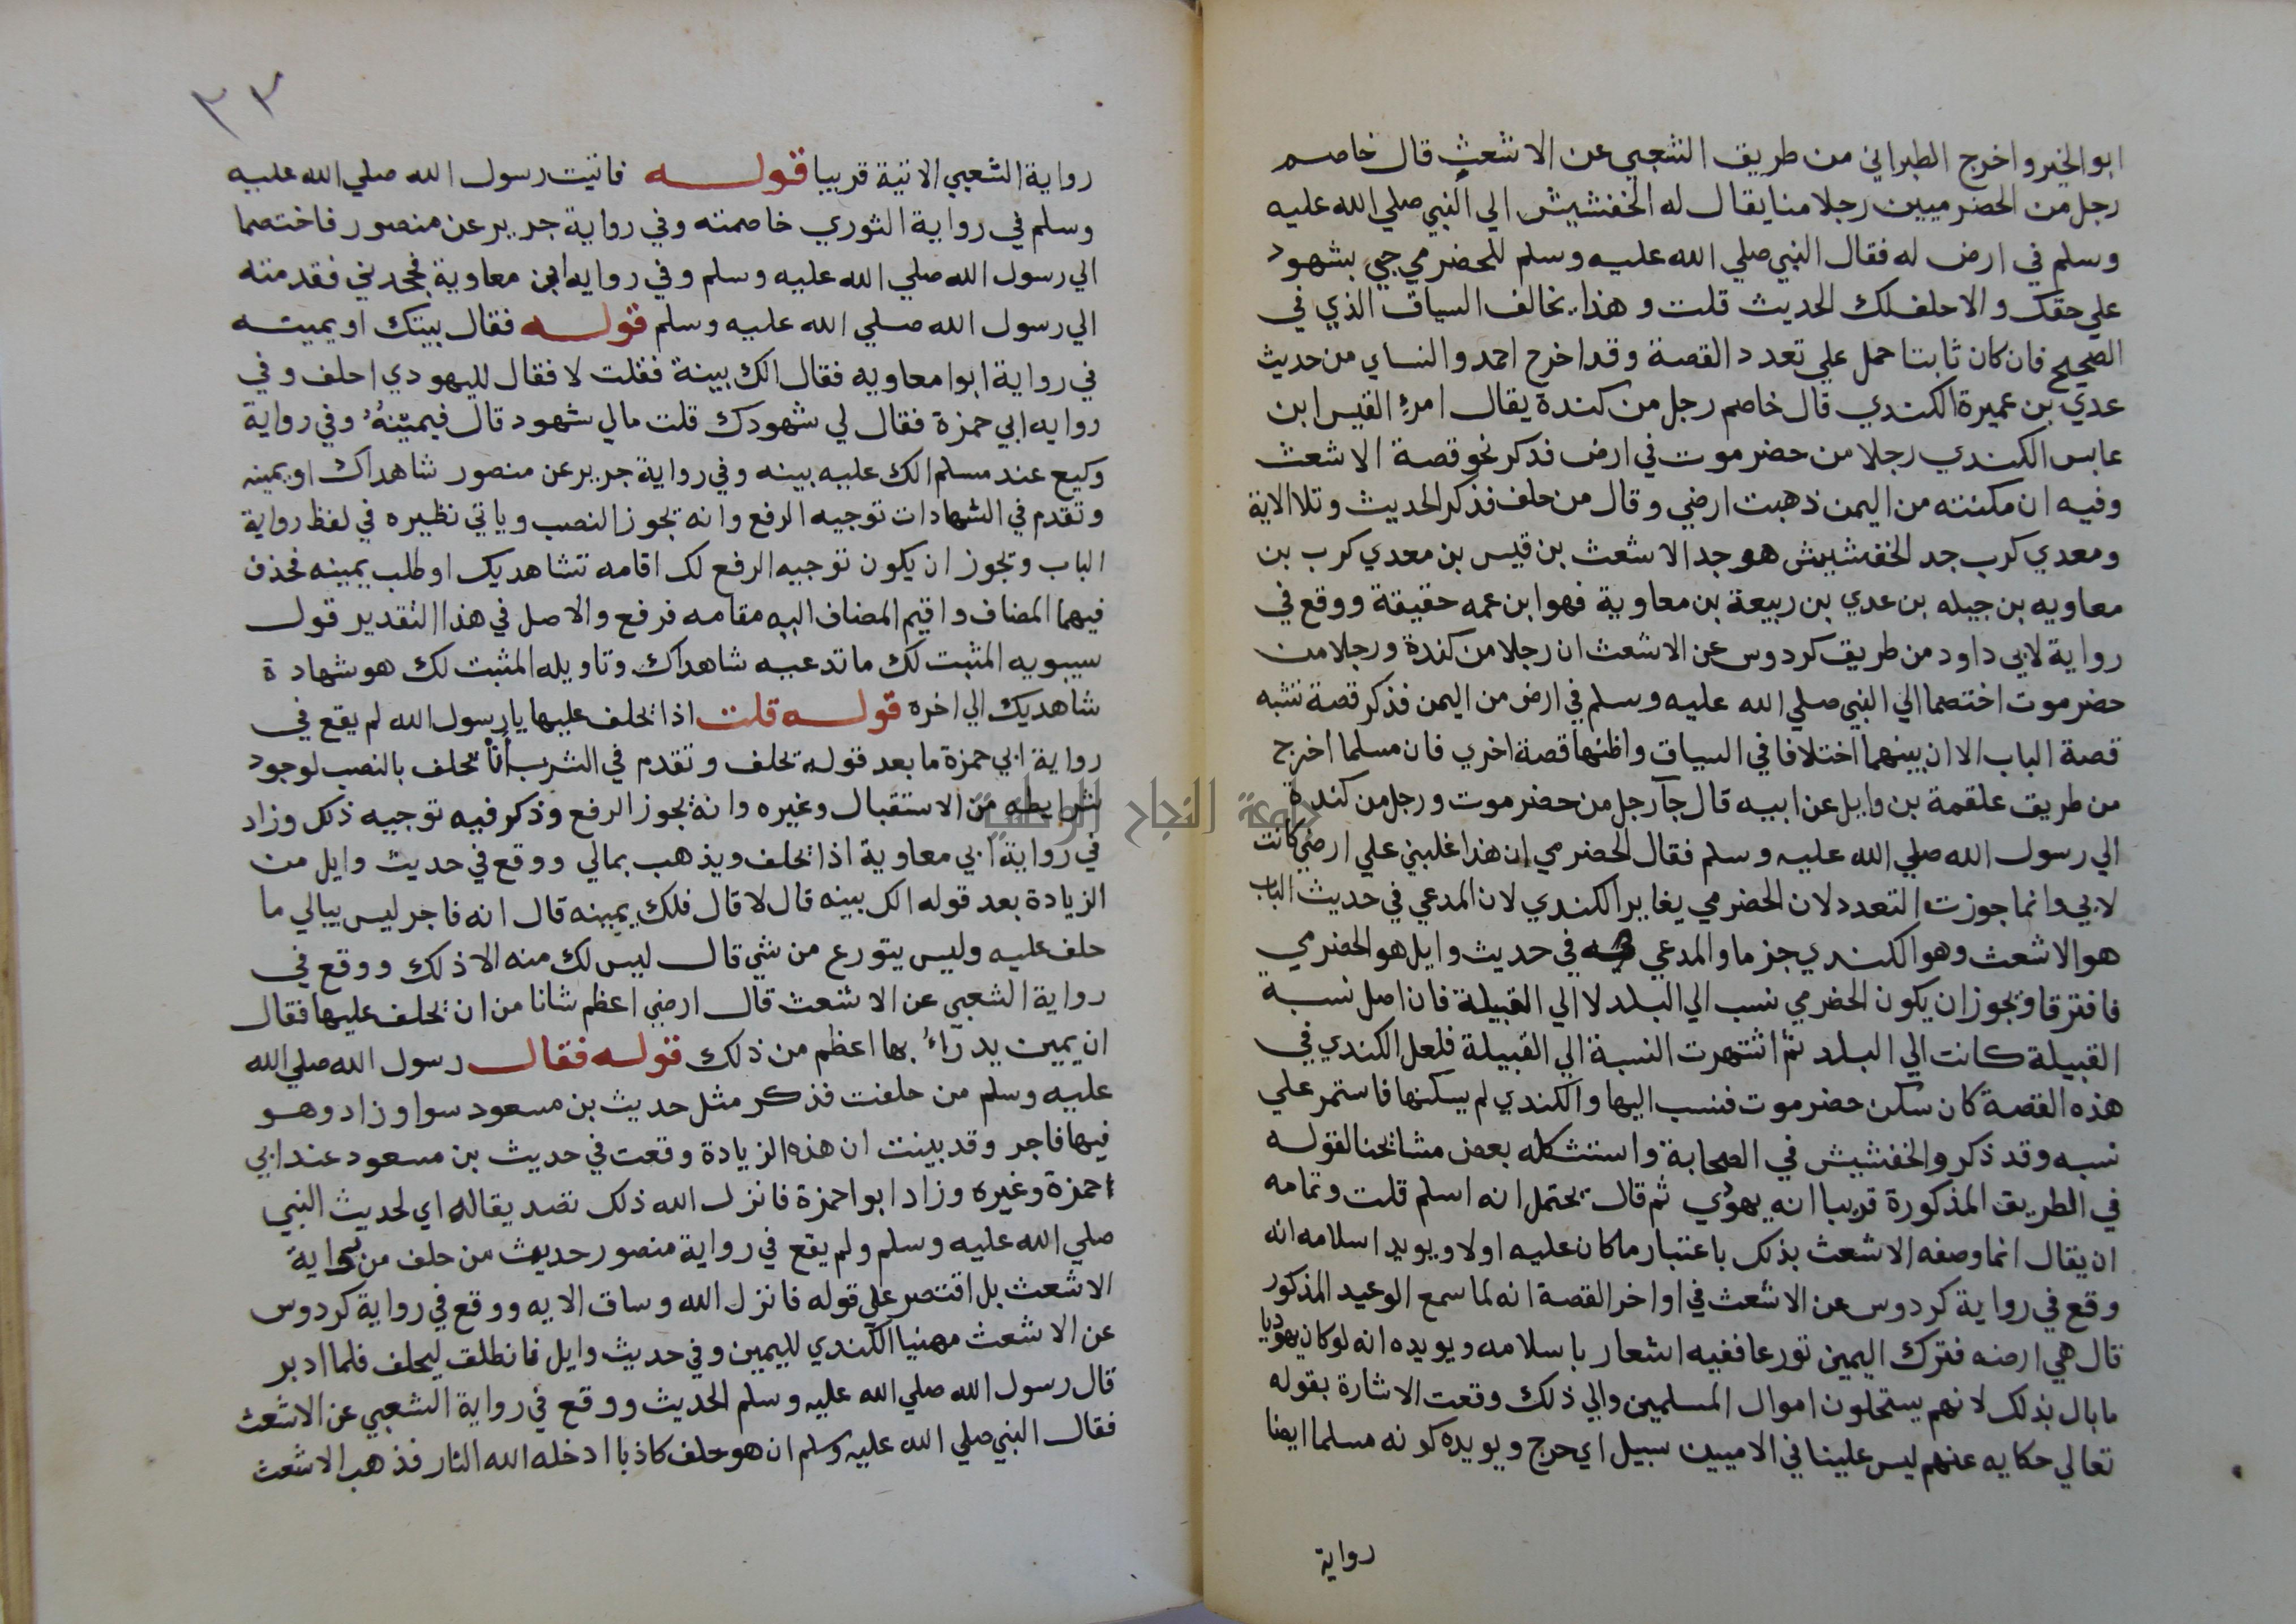 ابو الخير واخرج الطبراني من طريق الشعبي عن الاشعث قال خاصم
رجل من الحضرميين رجلا منا يقال له الخفشيش الي النبي صلي الله عليه
وسلم في ارض له فقال النبي صلي الله عليه وسلم للحضرمي جي بشهود
علي حقك والا حلف لك الحديث قلت وهذا يخالف السياق الذي في
الصحيح فان كان ثابتا حمل علي تعدد القصة وقد اخرج احمد والنساي من حديث
عدي بن عميرة الكندي قال خاصم رجل من كندة يقال امرء القيس ابن
عابس الكندي رجلا من حضرموت في ارض فذكر نحو قصة الاشعث
وفيه ان مكنته من اليمن ذهبت ارضي وقال من حلف فذكر الحديث وتلا الاية
ومعدي كرب جد الخفشيش هو جد الاشعث بن قيس بن معدي كرب بن
معاويه بن جبله بن عدي بن ربيعة بن معاوية فهو ابن عمه حقيقة ووقع في
رواية لابي داود من طريق كردوس عن الاشعث ان رجلا من كندة ورجلا من
حضرموت اختصما الي النبي صلي الله عليه وسلم في ارض من اليمن فذكر قصة تشبه
قصة الباب الا ان بينهما اختلافا في السياق واظنها قصة اخري فان مسلما اخرج
من طريق علقمة بن وايل عن ابيه قال جآ رجل من حضرموت ورجل من كندة
الي رسول الله صلي الله عليه وسلم فقال الحضرمي ان هذا غلبني علي ارضي كانت
لابي وانما جوزت التعدد لان الحضرمي يغاير الكندي لان المدعي في حديث الباب
هو الاشعث وهو الكندي جزما والمدعي في حديث وايل هو الحضرمي
فافترقا ويجوز ان يكون الحضرمي نسب الي البلد لا الي القبيلة فان اصل نسبة
القبيلة كانت الي البلد ثم اشتهرت النسبة الي القبيلة فلعل الكندي في
هذه القصة كان سكن حضرموت فنسب اليها والكندي لم يسكنها فاستمر علي
نسبه وقد ذكروا الخفشيش في الصحابة واستشكله بعض مشايخنا لقوله
في الطريق المذكورة قريبا انه يهودي ثم قال يحتمل انه اسلم قلت وتمامه
ان يقال انما وصفه الاشعث بذلك باعتبار ما كان عليه اولا ويويد اسلامه انه
وقع في رواية كردوس عن الاشعث في اواخر القصة انه لما سمع الوعيد المذكور
قال هي ارضه فترك اليمين تورعا ففيه اشعار باسلامه ويويده انه لو كان يهوديا
ما بال بذلك لانهم يستحلون اموال المسلمين والي ذلك وقعت الاشارة بقوله
تعالي حكايه عنهم ليس علينا في الاميين سبيل اي حرج ويويده كونه مسلما ايضا
رواية
٣٣
رواية الشعبي الاتية قريبا قوله فاتيت رسول الله صلي الله عليه
وسلم في رواية الثوري خاصمته وفي رواية جرير عن منصور فاختصما
الي رسول الله صلي الله عليه وسلم وفي روايه ابن معاوية فجحدني فقدمته
الي رسول الله صلي الله عليه وسلم قوله فقال بينتك او يمينه
في رواية ابوا معاويه فقال الك بينة فقلت لا فقال لليهودي احلف وفي
روايه ابي حمزة فقال لي شهودك قلت مالي شهود قال فيمينهُ وفي رواية
وكيع عند مسلم الك عليه بينه وفي رواية جرير عن منصور شاهداك او يمينه
وتقدم في الشهادات توجيه الرفع وانه يجوز النصب وياتي نظيره في لفظ رواية
الباب ويجوز ان يكون توجيه الرفع لك اقامه تشاهديك او طلب يمينه فحذف
فيهما المضاف واقيم المضاف اليه مقامه فرفع والاصل في هذا التقدير قول
سيبويه المثبت لك ما تدعيه شاهداك وتاويله المثبت لك هو شهادة
شاهديك الي اخره قوله قلت اذا يحلف عليها يا رسول الله لم يقع في
رواية ابي حمزة ما بعد قوله يحلف وتقدم في الشرب أنأ يحلف بالنصب لوجود
شرايطه من الاستقبال وغيره وانه يجوز الرفع وذكر فيه توجيه ذلك وزاد
في رواية ابي معاوية اذا يحلف ويذهب بمالي ووقع في حديث وايل من
الزيادة بعد قوله الك بينه قال لا قال فلك يمينه قال انه فاجر ليس يبالي ما
حلف عليه وليس يتورع من شي قال ليس لك منه الا ذلك ووقع في
رواية الشعبي عن الاشعث قال ارضي اعظم شانا من ان يحلف عليها فقال
ان يمين يدرٓاءُ بها اعظم من ذلك قوله فقال رسول الله صلي الله
عليه وسلم من حلفت فذكر مثل حديث بن مسعود سوا وزاد وهو
فيها فاجر وقد بينت ان هذه الزيادة وقعت في حديث بن مسعود عند ابي
حمزة وغيره وزاد ابوا حمزة فانزل الله ذلك تصديقاله اي لحديث النبي
صلي الله عليه وسلم ولم يقع في رواية منصور حديث من حلف من رواية
الاشعث بل اقتصر علي قوله فانزل الله وساق الايه ووقع في رواية كردوس
عن الاشعث مهنيا الكندي لليمين وفي حديث وايل فانطلق ليحلف فلما ادبر
قال رسول الله صلي الله عليه وسلم الحديث ووقع في رواية الشعبي عن الاشعث
فقال النبي صلي الله عليه وسلم ان هو حلف كاذبا ادخله الله النار فذهب الاشعث
جامعة النجاح الوطنية